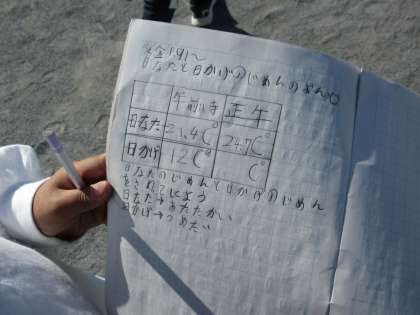 日なたと日かげのじめんのようす
午前10時 正午
日なた 21.4C° 24.7C°
日かげ 12C° C°
日なたのじめんと日かげのじめん
をされてしよう
日なた→あたたかい
日かげ→つめたい